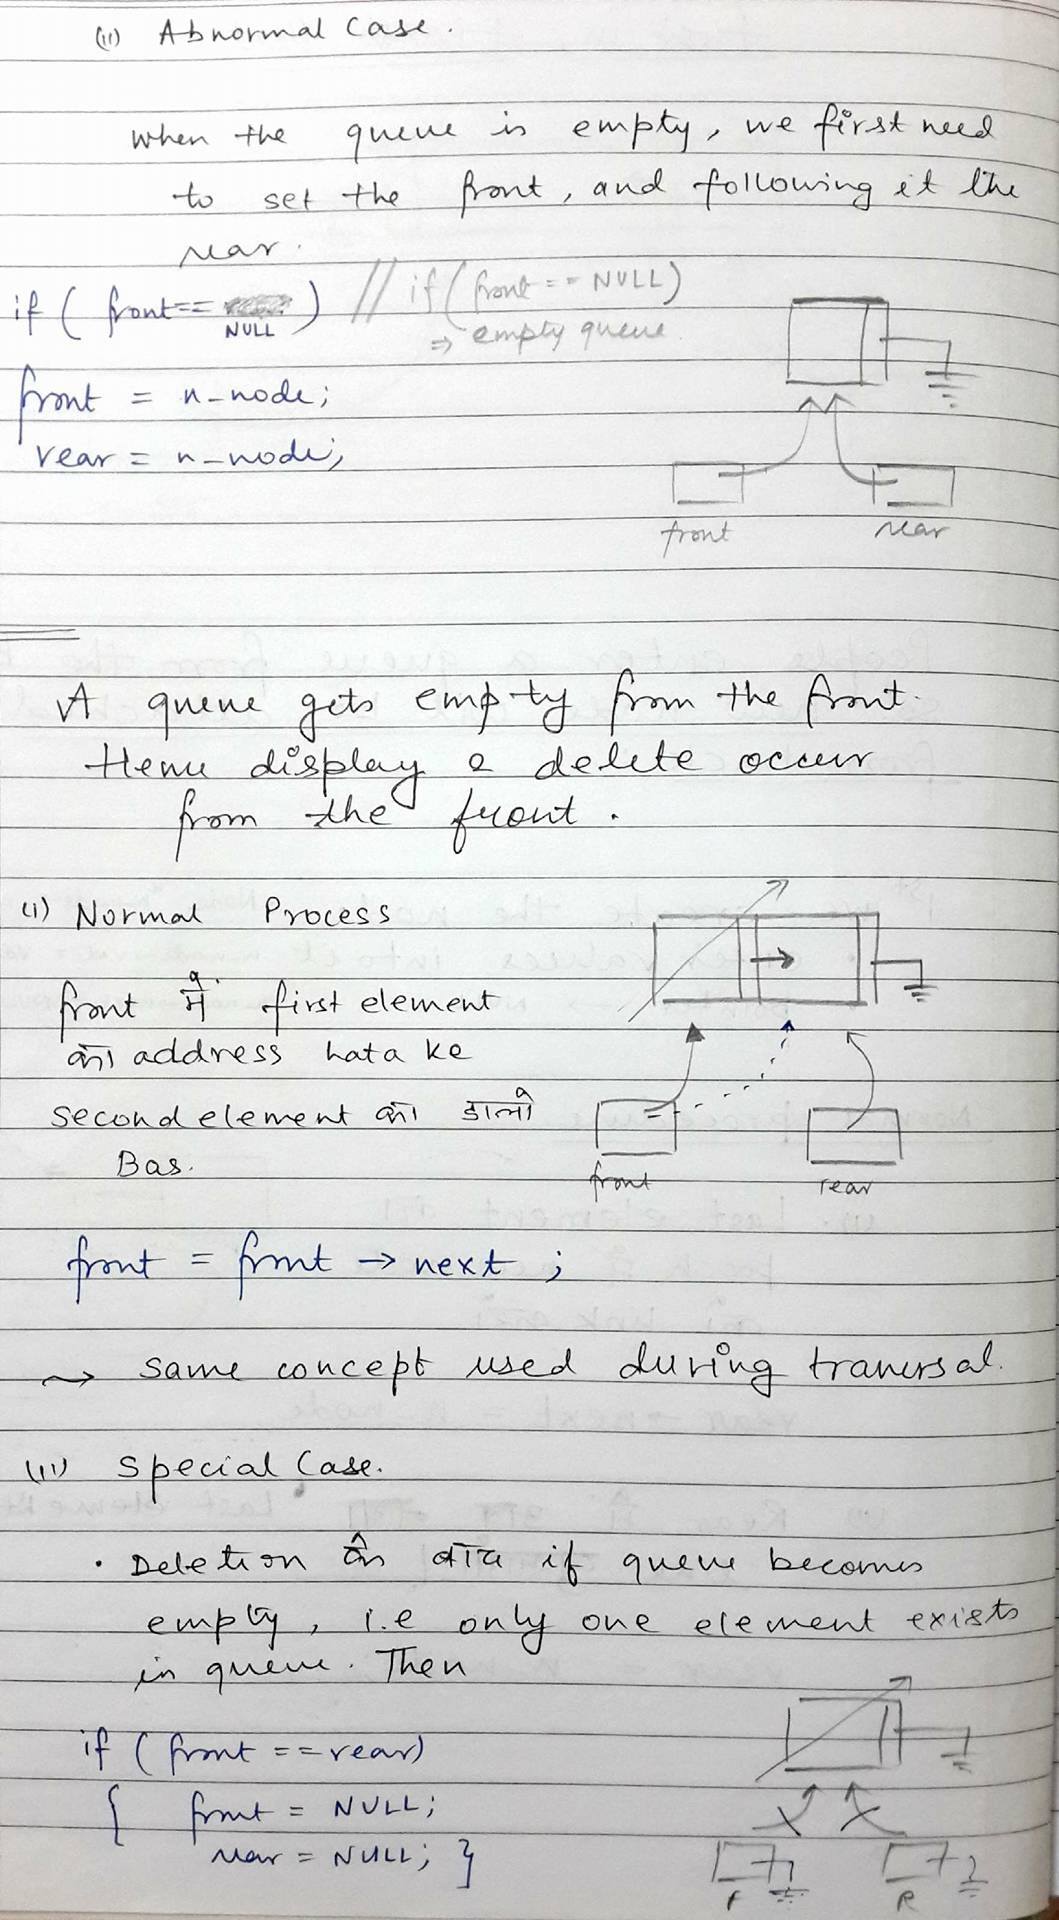 (ii) Abnormal Case.
When the queue is empty, we first need
to set the front, and following it the
rear.
if ( front == NULL ) // if ( front == NULL)
⇒ empty queue
front = n_node;
rear = n_node;
front rear
A queue gets empty from the front.
Hence display & delete occur
from the front.
(i) Normal Process
front में first element
का address hata ke
second element का डालो
Bas.
front rear
front = front → next ;
→ same concept used during traversal.
(ii) Special Case.
• Deletion के बाद if queue becomes
empty, i.e only one element exists
in queue. Then
if ( front == rear)
{ front = NULL;
rear = NULL; }
F R